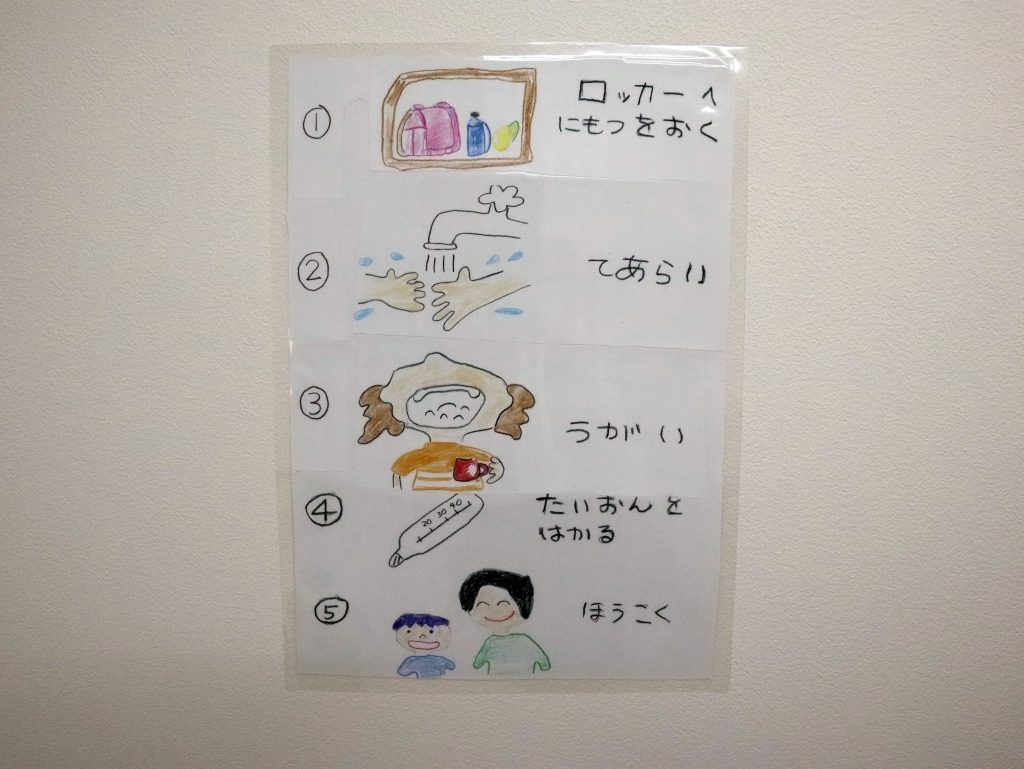 ① ロッカーへ
にもつをおく
② てあらい
③ うがい
20 30 40
④ たいおんを
はかる
⑤ ほうこく